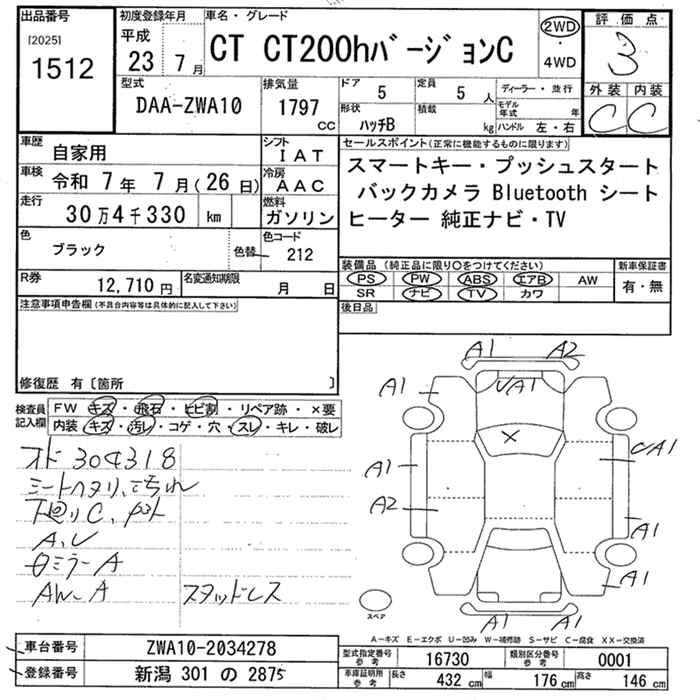 出品番号
[2025]
1512
初度登録年月
平成
23 7月
車名・グレード
CT CT200hバージョンC
2WD
・
4WD
評価点
3
外装 内装
C C
型式
DAA-ZWA10
排気量
1797
CC
ドア
5
定員
5人
ディーラー・並行
形状
ハッチB
積載
kg
モデル年式 年
ハンドル 左・右
車歴
自家用
シフト
IAT
車検
令和 7年 7月(26日)
冷房
AAC
走行
30万4千330 km
燃料
ガソリン
色
ブラック
色替
色コード
212
R券
12,710円
名変通知期限
月 日
セールスポイント(正常に機能するものに限ります)
スマートキー・プッシュスタート
バックカメラ Bluetooth シート
ヒーター 純正ナビ・TV
装備品(純正品に限り○をつけてください)
PS PW ABS エアB AW
SR ナビ TV カワ
新車保証書
有・無
後日品
注意事項申告欄(不具合内容等は具体的に記入して下さい)
修復歴 有〔箇所 〕
検査員
記入欄
FW キズ・飛石・ヒビ割・リペア跡・×要
内装 キズ・汚レ・コゲ・穴・スレ・キレ・破レ
オド 304318
シートヘタリ、
下廻りC、
A,U
ミラーA
AW-A
スタッドレス
A1 A2
A1 UA1
A1
A2
UA1
A1
A1
A1 A1
スペア
A-キズ E-エクボ U-凹み W-補修跡 S-サビ C-腐食 XX-交換済
車台番号
ZWA10-2034278
登録番号
新潟 301 の 2875
型式指定番号
参考
16730
類別区分番号
参考
0001
車庫証明用
参考
長さ 432 cm
幅 176 cm
高さ 146 cm